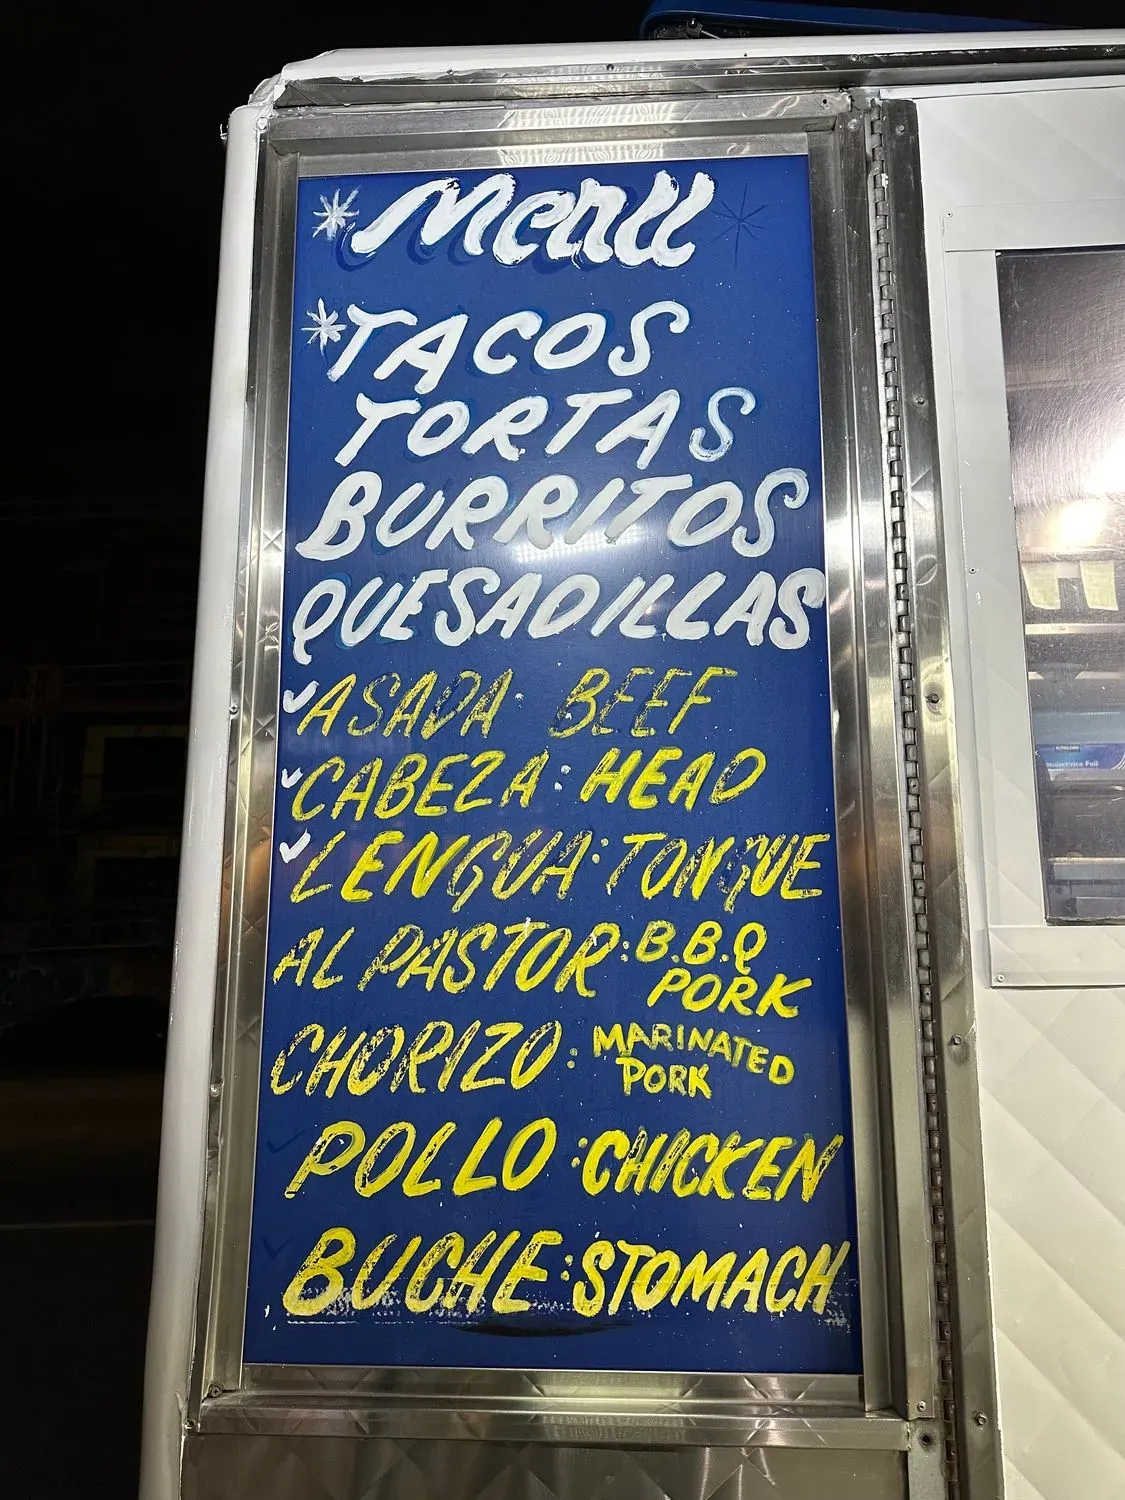 Menu
TACOS
TORTAS
BURRITOS
QUESADILLAS
ASADA: BEEF
CABEZA: HEAD
LENGUA: TONGUE
AL PASTOR: B.B.Q
PORK
CHORIZO: MARINATED
PORK
POLLO: CHICKEN
BUCHE: STOMACH